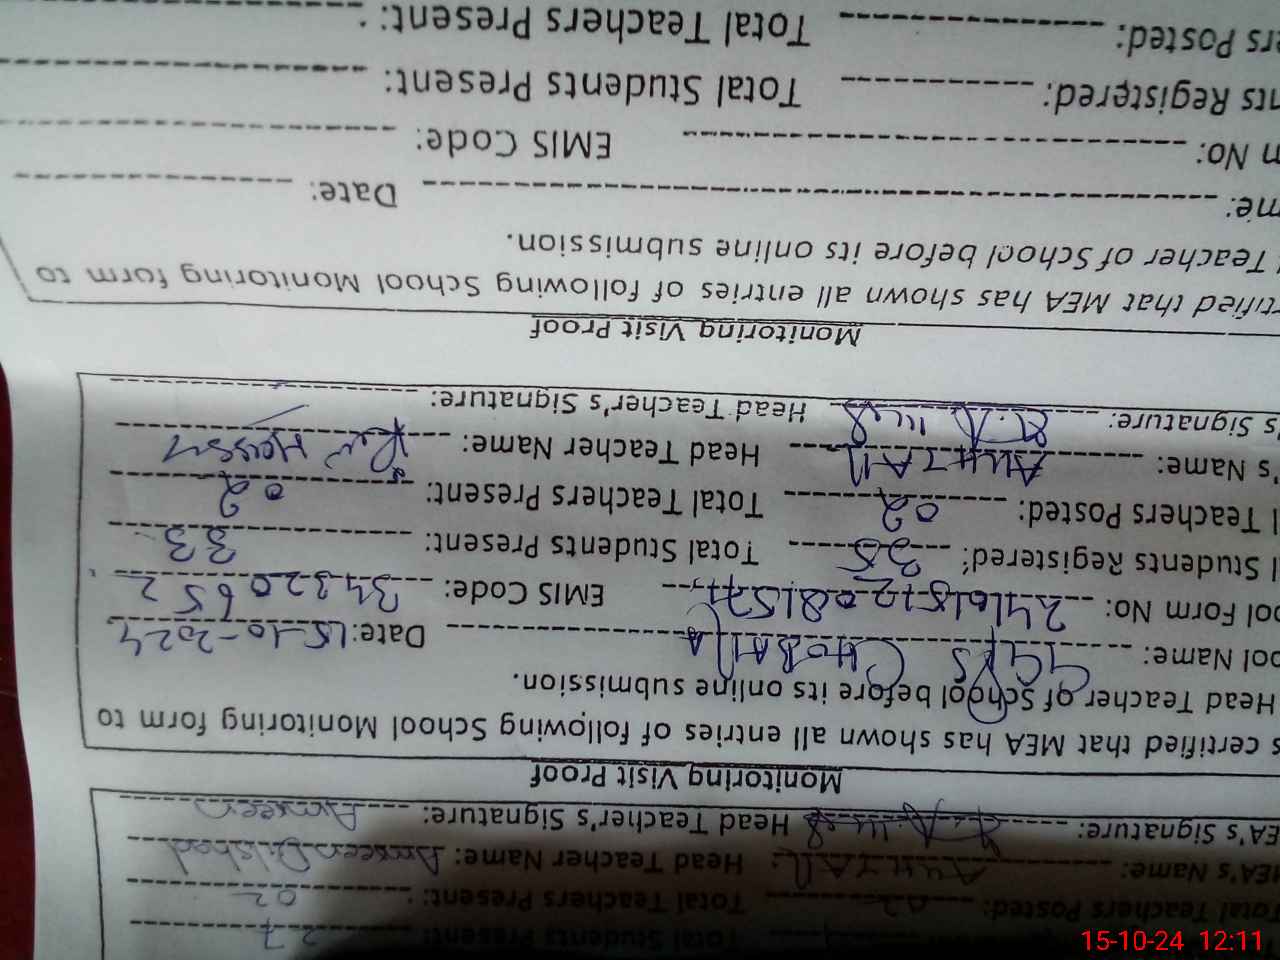 Total Students Present: 27
Total Teachers Posted: 02 Total Teachers Present: 02
MEA's Name: Head Teacher Name: Ambreen Dilshad
MEA's Signature: Head Teacher's Signature: Ambreen
Monitoring Visit Proof
s certified that MEA has shown all entries of following of Monitoring School Monitoring form to
Head Teacher of School before its online submission.
ool Name: GGPS CHOBANA Date: 15-10-2024
ool Form No: EMIS Code: 34320652
l Students Registered: 35 Total Students Present: 33
l Teachers Posted: 02 Total Teachers Present: 02
's Name: Head Teacher Name:
's Signature: Head Teacher's Signature:
Monitoring Visit Proof
rtified that MEA has shown all entries of following School Monitoring form to
Teacher of School before its online submission.
me: Date:
m No: EMIS Code:
nts Registered: Total Students Present:
ers Posted: Total Teachers Present:
15-10-24 12:11